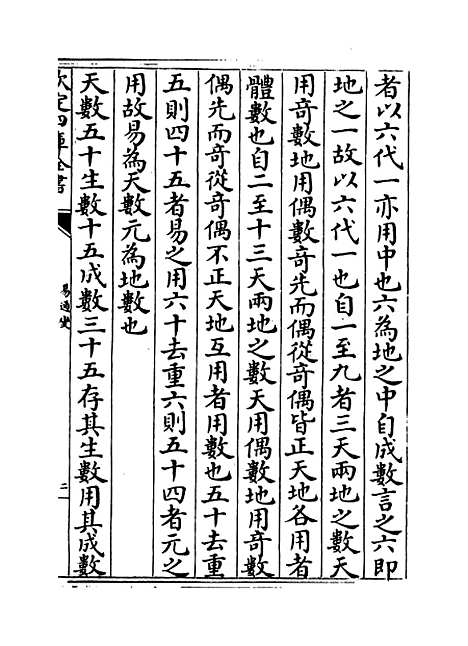 者以六代一亦用中也六為地之中自成數言之六即
地之一故以六代一也自一至九者三天兩地之數天
用奇數地用偶數奇先而偶從奇偶皆正天地各用者
體數也自二至十三天兩地之數天用偶數地用奇數
偶先而奇從奇偶不正天地互用者用數也五十去重
五則四十五者易之用六十去重六則五十四者元之
用故易為天數元為地數也
天數五十生數十五成數三十五存其生數用其成數
欽定四庫全書
易通變